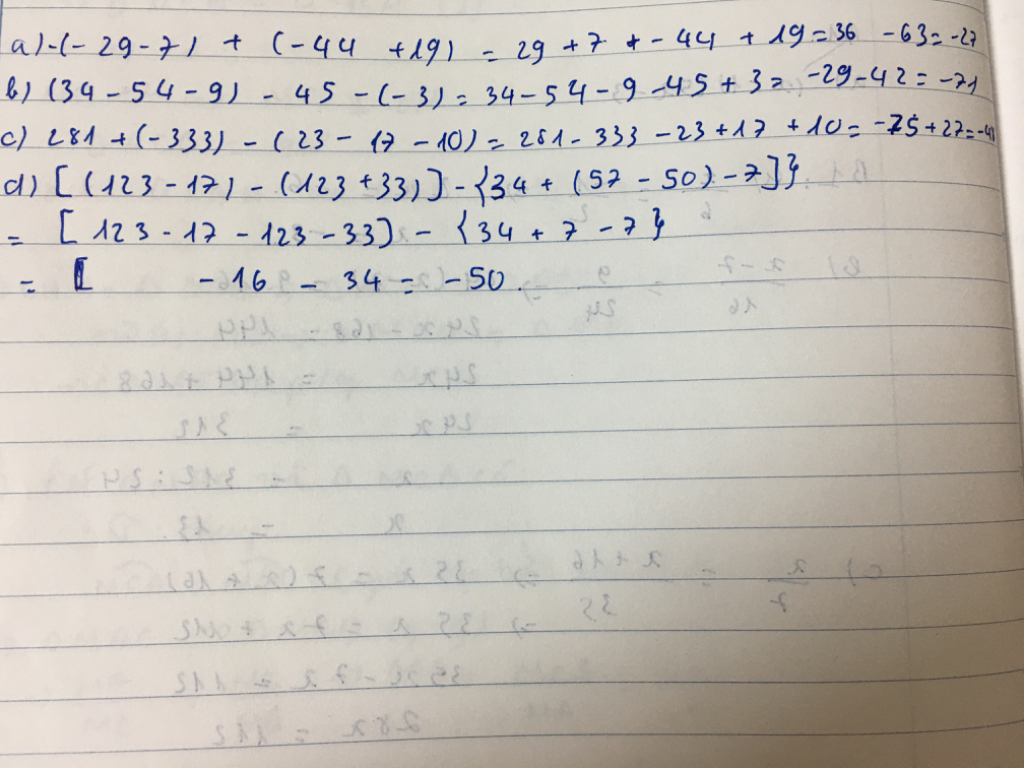 a) -(-29-7) + (-44 +19) = 29 +7 + -44 + 19 = 36 -63 = -27
b) (34 - 54 - 9) - 45 - (-3) = 34 - 54 - 9 - 45 + 3 = -29 - 42 = -71
c) 281 + (-333) - (23 - 17 - 10) = 281 - 333 - 23 + 17 + 10 = -75 + 27 = -48
d) [(123 - 17) - (123 + 33)] - {34 + (57 - 50) - 7]}
= [123 - 17 - 123 - 33] - {34 + 7 - 7}
= [ -16 - 34 = -50.